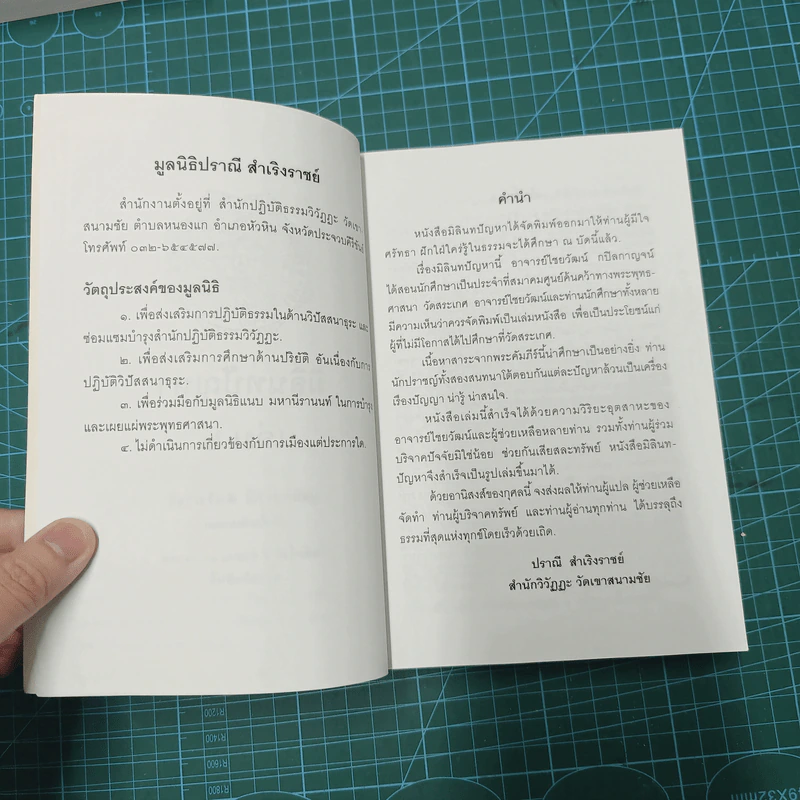 มูลนิธิปราณี สำเริงราชย์
สำนักงานตั้งอยู่ที่ สำนักปฏิบัติธรรมวิวัฏฏะ วัดเขา
สนามชัย ตำบลหนองแก อำเภอหัวหิน จังหวัดประจวบคีรีขันธ์
โทรศัพท์ ๐๓๒-๖๕๔๕๗๗.
วัตถุประสงค์ของมูลนิธิ
๑. เพื่อส่งเสริมการปฏิบัติธรรมในด้านวิปัสสนาธุระ และ
ซ่อมแซมบำรุงสำนักปฏิบัติธรรมวิวัฏฏะ.
๒. เพื่อส่งเสริมการศึกษาด้านปริยัติ อันเนื่องกับการ
ปฏิบัติวิปัสสนาธุระ.
๓. เพื่อร่วมมือกับมูลนิธิแนบ มหานีรานนท์ ในการบำรุง
และเผยแผ่พระพุทธศาสนา.
๔. ไม่ดำเนินการเกี่ยวข้องกับการเมืองแต่ประการใด.
คำนำ
หนังสือมิลินทปัญหาได้จัดพิมพ์ออกมาให้ท่านผู้มีใจ
ศรัทธา ฝักใฝ่ใคร่รู้ในธรรมจะได้ศึกษา ณ บัดนี้แล้ว.
เรื่องมิลินทปัญหานี้ อาจารย์ไชยวัฒน์ กปิลกาญจน์
ได้สอนนักศึกษาเป็นประจำที่สมาคมศูนย์ค้นคว้าทางพระพุทธ-
ศาสนา วัดสระเกศ อาจารย์ไชยวัฒน์และท่านนักศึกษาทั้งหลาย
มีความเห็นว่าควรจัดพิมพ์เป็นเล่มหนังสือ เพื่อเป็นประโยชน์แก่
ผู้ที่ไม่มีโอกาสได้ไปศึกษาที่วัดสระเกศ.
เนื้อหาสาระจากพระคัมภีร์นี้น่าศึกษาเป็นอย่างยิ่ง ท่าน
นักปราชญ์ทั้งสองสนทนาโต้ตอบกันแต่ละปัญหาล้วนเป็นเครื่อง
เรืองปัญญา น่ารู้ น่าสนใจ.
หนังสือเล่มนี้สำเร็จได้ด้วยความวิริยะอุตสาหะของ
อาจารย์ไชยวัฒน์และผู้ช่วยเหลือหลายท่าน รวมทั้งท่านผู้ร่วม
บริจาคปัจจัยมิใช่น้อย ช่วยกันเสียสละทรัพย์ หนังสือมิลินท-
ปัญหาจึงสำเร็จเป็นรูปเล่มขึ้นมาได้.
ด้วยอานิสงส์ของกุศลนี้ จงส่งผลให้ท่านผู้แปล ผู้ช่วยเหลือ
จัดทำ ท่านผู้บริจาคทรัพย์ และท่านผู้อ่านทุกท่าน ได้บรรลุถึง
ธรรมที่สุดแห่งทุกข์โดยเร็วด้วยเถิด.
ปราณี สำเริงราชย์
สำนักวิวัฏฏะ วัดเขาสนามชัย
R1200
R1400
R1600
R1800